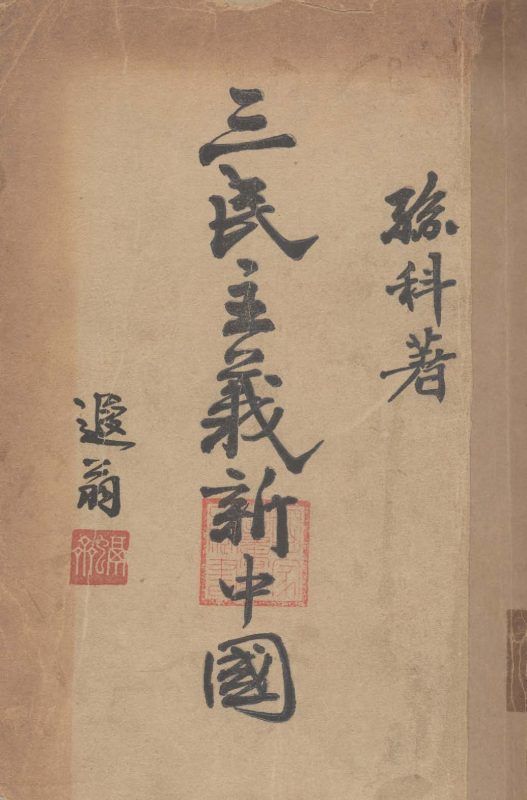 孫科著
三民主義新中國
遐翁